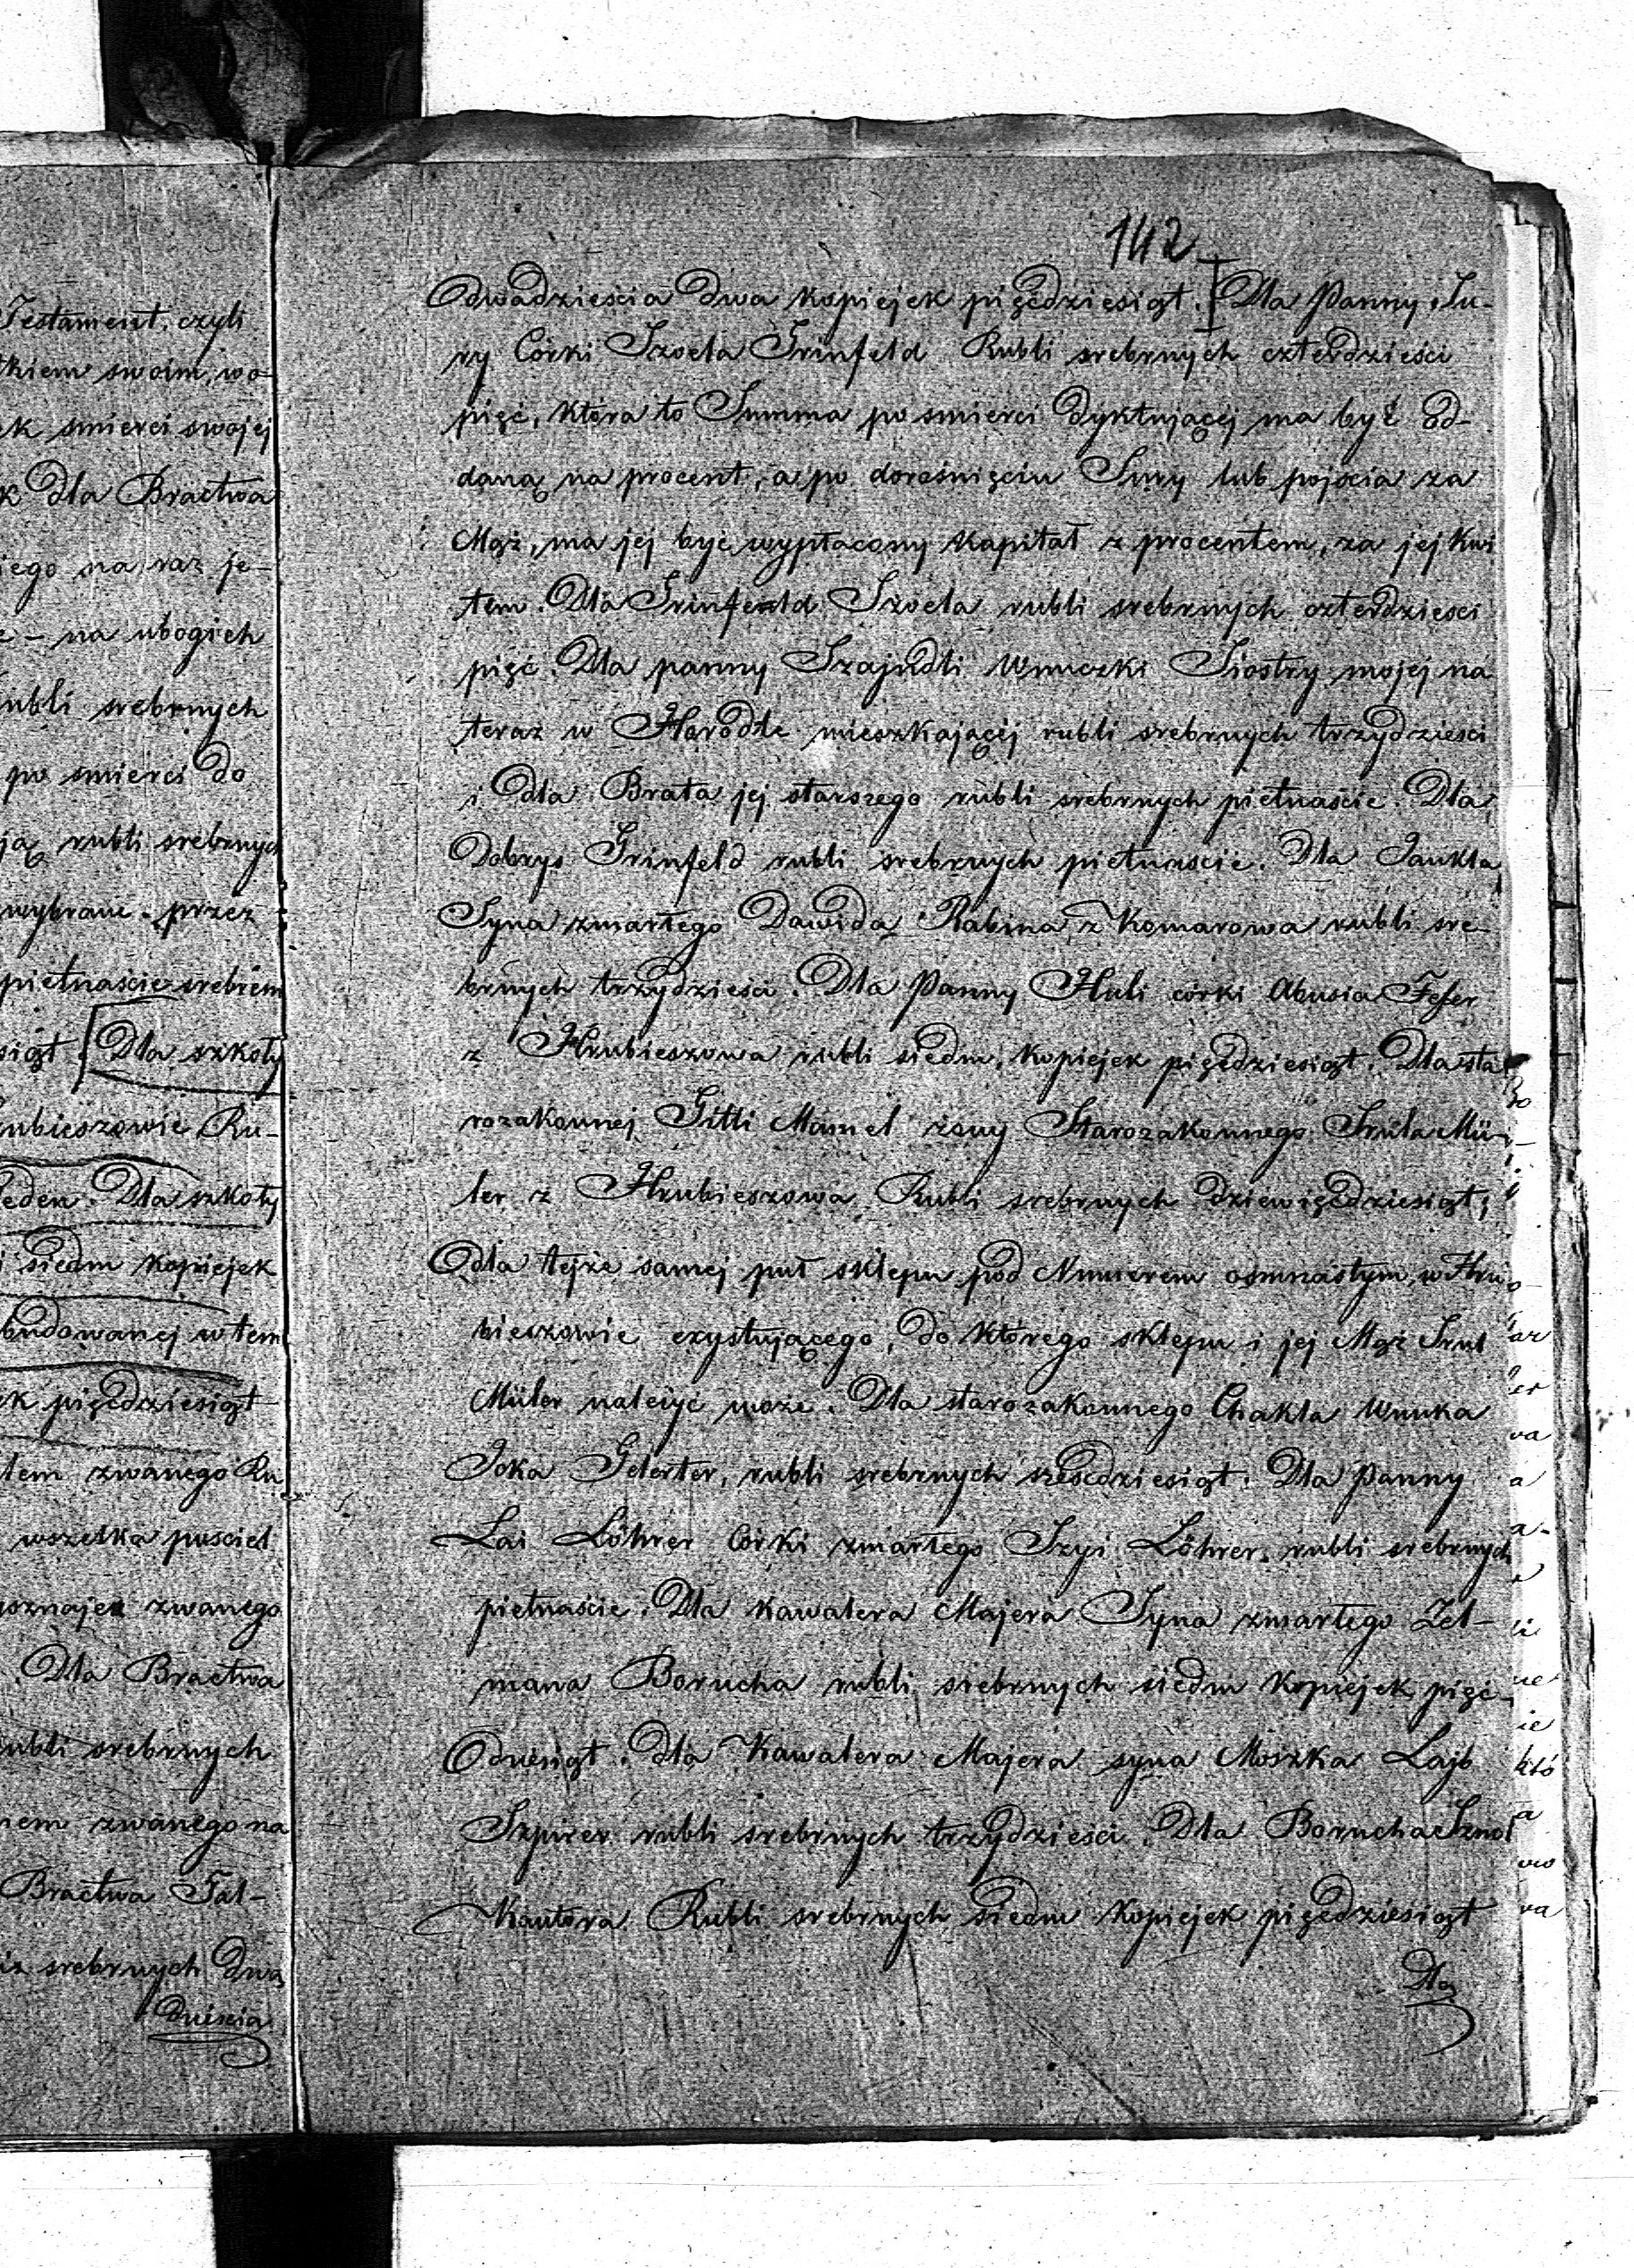 Testament, czyli
kiem swoim, wo-
ek smierci swojej
k dla Bractwa
iego na raz je-
e – na ubogich
ubli srebrnych
po smierci do
ją rubli srebrnych
wybrane przez
pietnaście srebrem
siąt. [Dla szkoły
ubieszowie Ru-
eden. Dla szkoły
i siedm kopiejek
budowanej w tem
ek pięćdziesiąt
tem zwanego Ru
wszelka posciel
zwanego
Dla Bractwa
ubli srebrnych
nem zwanego na
Bractwa Tal-
srebrnych dwa
dzieścia
142
dwadzieścia dwa kopiejek pięćdziesiąt. [Dla Panny Su-
ry Córki Szoela Grinfeld Rubli srebrnych czterdzieści
pięć, która to Summa po smierci dyktującej ma być od-
daną na procent, a po dorośnięciu Sury lub pojścia za
Mąż, ma jej być wypłacony kapitał z procentem, za jej kwi
tem. Dla Grinfeld Szoela rubli srebrnych czterdziesci
pięć. Dla panny Szajndli Wnuczki Siostry mojej na
teraz w Horodle mieszkającej rubli srebrnych trzydzieści
i dla Brata jej starszego rubli srebrnych pietnaście. Dla
Dobrys Grinfeld rubli srebrnych pietnaście. Dla Jankla
Syna zmarłego Dawida Rabina z Komarowa rubli sre-
brnych trzydzieści. Dla Panny Huli córki Abusia Feser
z Hrubieszowa rubli siedm, kopiejek pięćdziesiąt. Dla sta
rozakonnej Gitli Mamel żony Starozakonnego Srula Mü-
ler z Hrubieszowa Rubli srebrnych dziewięćdziesiąt;
dla tejże samej puł sklepu pod Numerem osmnastym, w Hru
bieszowie exystującego, do którego sklepu i jej Mąż Srul
Müler należyć może. Dla starozakonnego Chakla Wnuka
Joka Gelerter, rubli srebrnych sześćdziesiąt. Dla Panny
Lai Löhrer Córki zmarłego Szyi Löhrer, rubli srebrnych
pietnaście. Dla kawalera Majera Syna zmarłego Zel-
mana Borucha rubli srebrnych siedm kopiejek pięć-
dziesiąt. Dla Kawalera Majera syna Moszka Lajb
Szpirer rubli srebrnych trzydzieści. Dla Borucha
Kantora Rubli srebrnych siedm kopiejek pięćdziesiąt
Dla